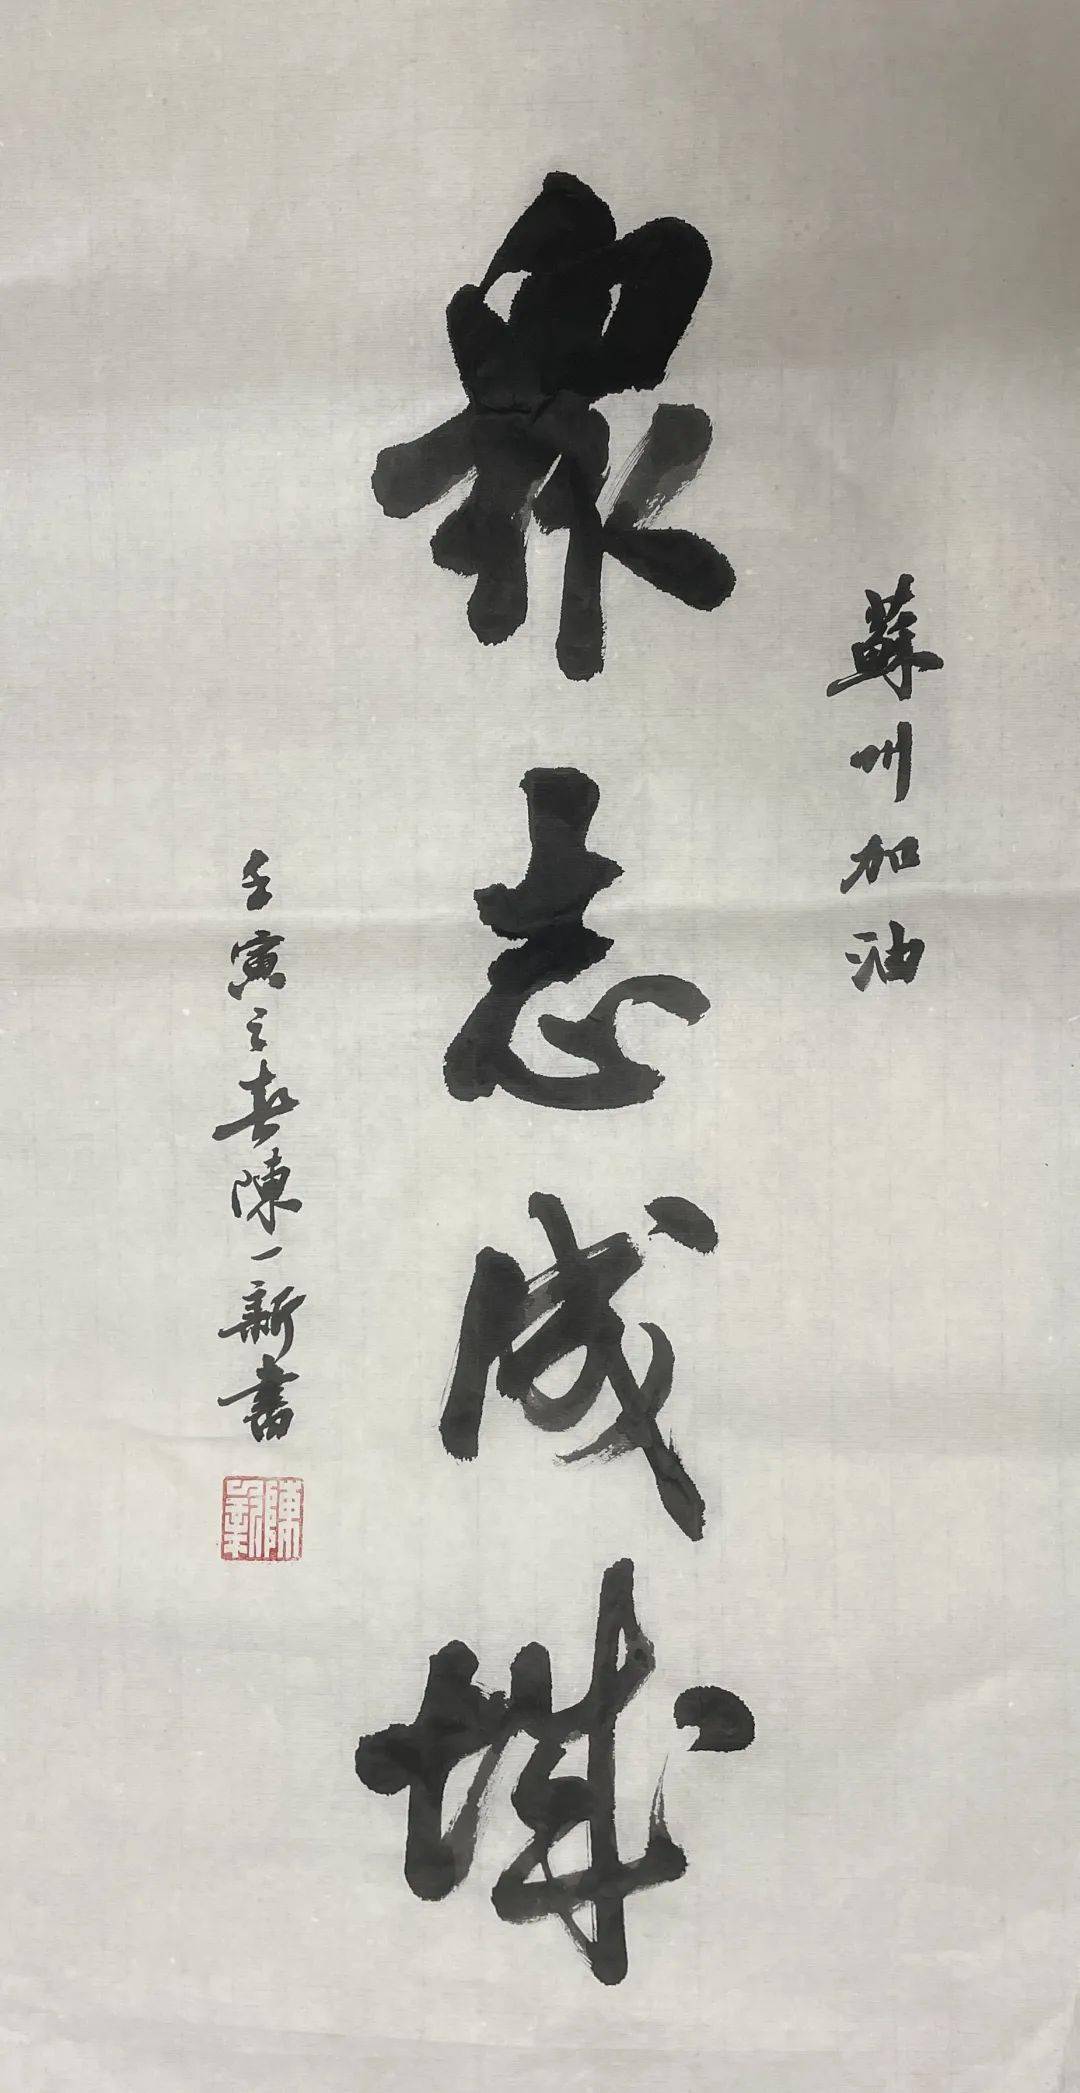 蘇州加油
眾志成城
壬寅之春陳一新書
陳一新